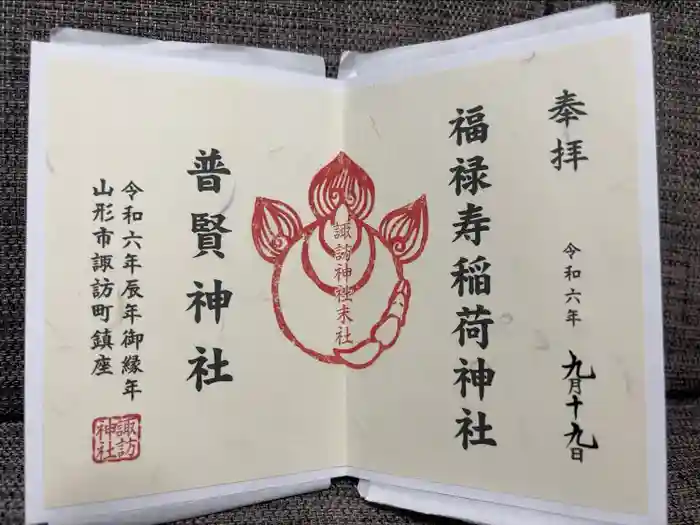 奉拝
令和六年 九月十九日
福禄寿稲荷神社
諏訪神社末社
普賢神社
令和六年辰年御縁年
山形市諏訪町鎮座
諏訪
神社